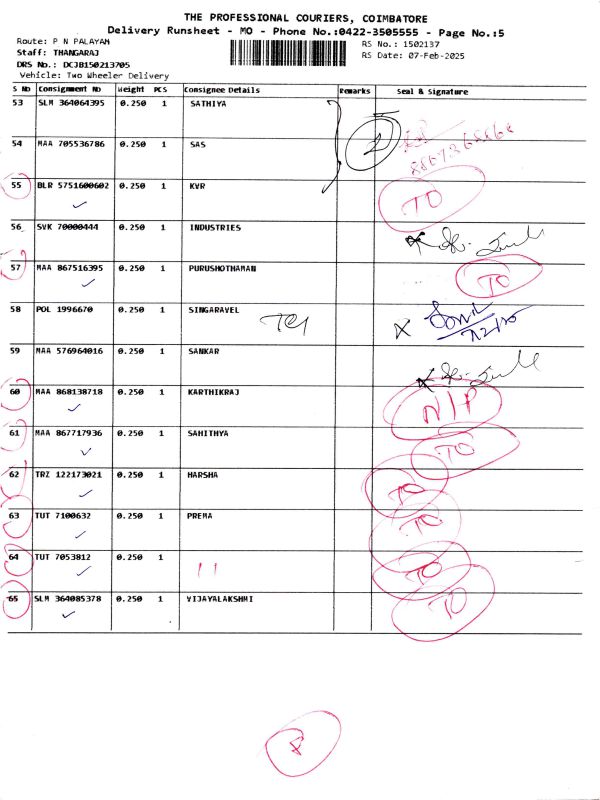 THE PROFESSIONAL COURIERS, COIMBATORE
Delivery Runsheet - MO - Phone No.:0422-3505555 - Page No.:5
Route: P N PALAYAM
RS No.: 1502137
Staff: THANGARAJ
RS Date: 07-Feb-2025
DRS No.: DCJB150213705
Vehicle: Two Wheeler Delivery
S No Consignment No Weight PCS Consignee Details Remarks Seal & Signature
53 SLM 364064395 0.250 1 SATHIYA
54 MAA 705536786 0.250 1 SAS 2
55 BLR 5751600602 0.250 1 KVR TO
56 SVK 70000444 0.250 1 INDUSTRIES
57 MAA 867516395 0.250 1 PURUSHOTHAMAN TO
58 POL 1996670 0.250 1 SINGARAVEL
59 MAA 576964016 0.250 1 SANKAR
60 MAA 868138718 0.250 1 KARTHIKRAJ N/P
61 MAA 867717936 0.250 1 SAHITHYA TO
62 TRZ 122173021 0.250 1 HARSHA TO
63 TUT 7100632 0.250 1 PREMA TO
64 TUT 7053812 0.250 1 11 TO
65 SLM 364085378 0.250 1 VIJAYALAKSHMI TO
8